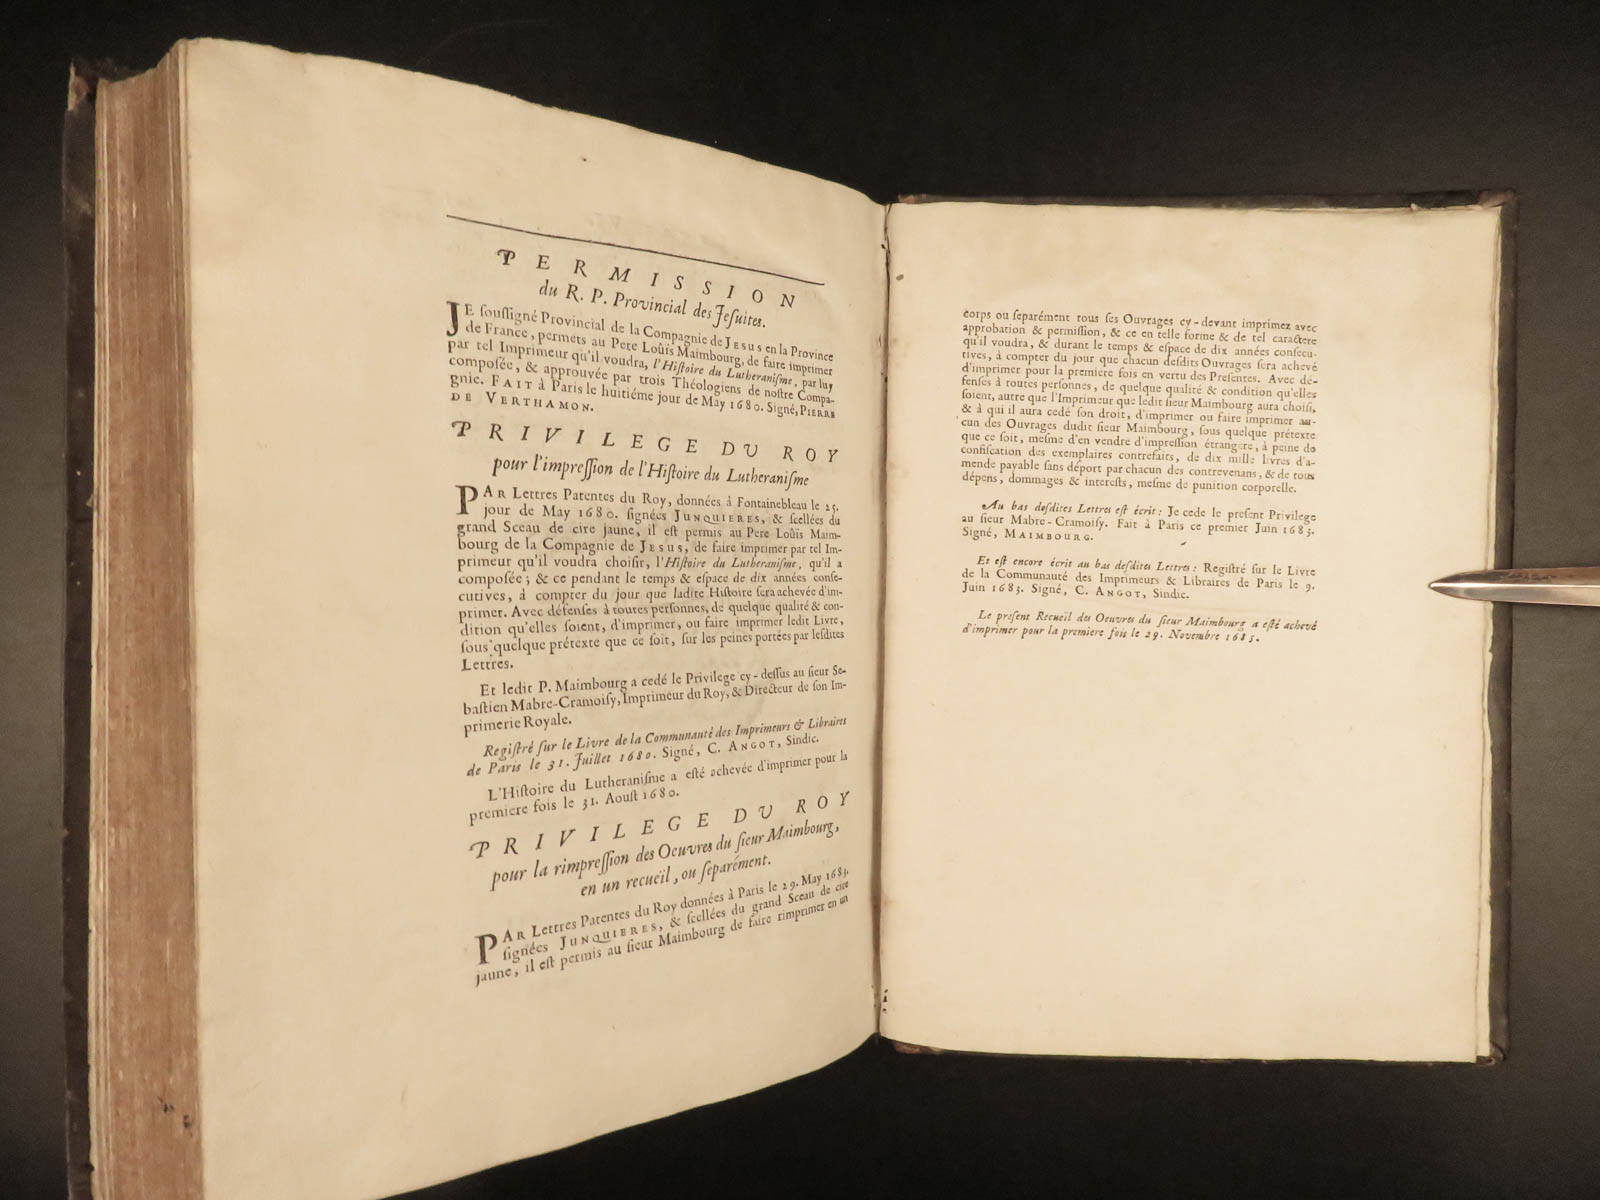 PERMISSION
du R. P. Provincial des Jeſuites.
JE ſouſſigné Provincial de la Compagnie de JESUS en la Province
de France, permets au Pere Loüis Maimbourg, de faire imprimer
par tel Imprimeur qu'il voudra, l'Hiſtoire du Lutheraniſme, par luy
compoſée, & approuvée par trois Théologiens de noſtre Compa-
gnie. FAIT à Paris le huitiéme jour de May 1680. Signé, PIERRE
DE VERTHAMON.
PRIVILEGE DU ROY
pour l'impreſſion de l'Hiſtoire du Lutheraniſme
PAR Lettres Patentes du Roy, données à Fontainebleau le 25.
jour de May 1680. ſignées JUNQUIERES, & ſcellées du
grand Sceau de cire jaune, il eſt permis au Pere Loüis Maim-
bourg de la Compagnie de JESUS, de faire imprimer par tel Im-
primeur qu'il voudra choiſir, l'Hiſtoire du Lutheraniſme, qu'il a
compoſée; & ce pendant le temps & eſpace de dix années conſe-
cutives, à compter du jour que ladite Hiſtoire ſera achevée d'im-
primer. Avec défenſes à toutes perſonnes, de quelque qualité & con-
dition qu'elles ſoient, d'imprimer, ou faire imprimer ledit Livre,
ſous quelque prétexte que ce ſoit, ſur les peines portées par leſdites
Lettres.
Et ledit P. Maimbourg a cedé le Privilege cy-deſſus au ſieur Se-
baſtien Mabre-Cramoiſy, Imprimeur du Roy, & Directeur de ſon Im-
primerie Royale.
Regiſtré ſur le Livre de la Communauté des Imprimeurs & Libraires
de Paris le 31. Juillet 1680. Signé, C. ANGOT, Sindic.
L'Hiſtoire du Lutheraniſme a eſté achevée d'imprimer pour la
premiere fois le 31. Aouſt 1680.
PRIVILEGE DU ROY
pour la rimpreſſion des Oeuvres du ſieur Maimbourg,
en un recueïl, ou ſeparément.
PAR Lettres Patentes du Roy données à Paris le 29. May 1683.
ſignées JUNQUIERES, & ſcellées du grand Sceau de cire
jaune, il eſt permis au ſieur Maimbourg de faire rimprimer en un
corps ou ſeparément tous ſes Ouvrages cy-devant imprimez avec
approbation & permiſſion, & ce en telle forme & de tel caractere
qu'il voudra, & durant le temps & eſpace de dix années conſecu-
tives, à compter du jour que chacun deſdits Ouvrages ſera achevé
d'imprimer pour la premiere fois en vertu des Preſentes. Avec dé-
fenſes à toutes perſonnes, de quelque qualité & condition qu'elles
ſoient, autre que l'Imprimeur que ledit ſieur Maimbourg aura choiſi,
& à qui il aura cedé ſon droit, d'imprimer ou faire imprimer au-
cun des Ouvrages dudit ſieur Maimbourg, ſous quelque prétexte
que ce ſoit, meſme d'en vendre d'impreſſion étrangere, à peine de
confiſcation des exemplaires contrefaits, de dix mille livres d'a-
mende payable ſans déport par chacun des contrevenans, & de tous
dépens, dommages & intereſts, meſme de punition corporelle.
Au bas deſdites Lettres eſt écrit: Je cede le preſent Privilege
au ſieur Mabre-Cramoiſy. Fait à Paris ce premier Juin 1683.
Signé, MAIMBOURG.
Et eſt encore écrit au bas deſdites Lettres: Regiſtré ſur le Livre
de la Communauté des Imprimeurs & Libraires de Paris le 9.
Juin 1683. Signé, C. ANGOT, Sindic.
Le preſent Recueïl des Oeuvres du ſieur Maimbourg a eſté achevé
d'imprimer pour la premiere fois le 29. Novembre 1685.